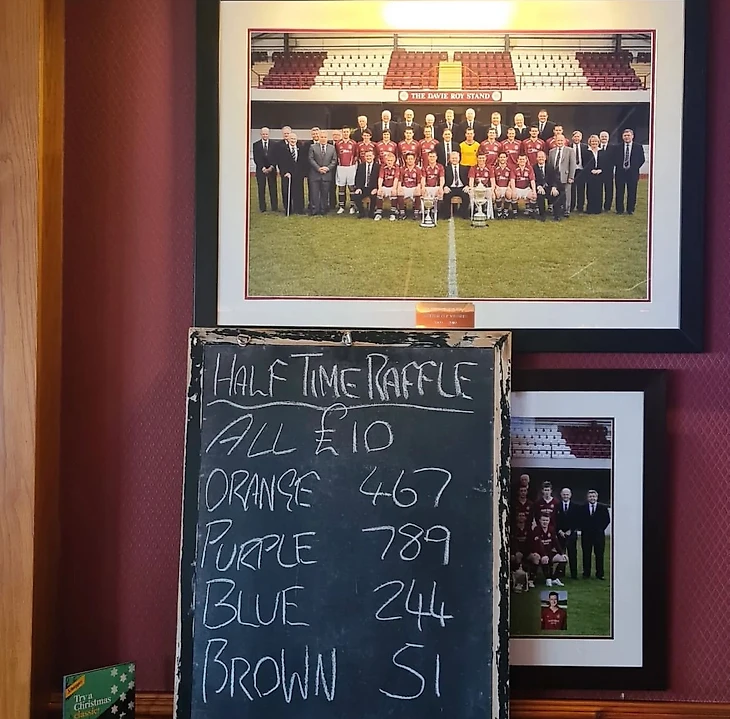 THE DAVIE ROY STAND
HALF TIME RAFFLE
ALL £10
ORANGE 467
PURPLE 789
BLUE 244
BROWN 51
Try a
Christmas
classic!